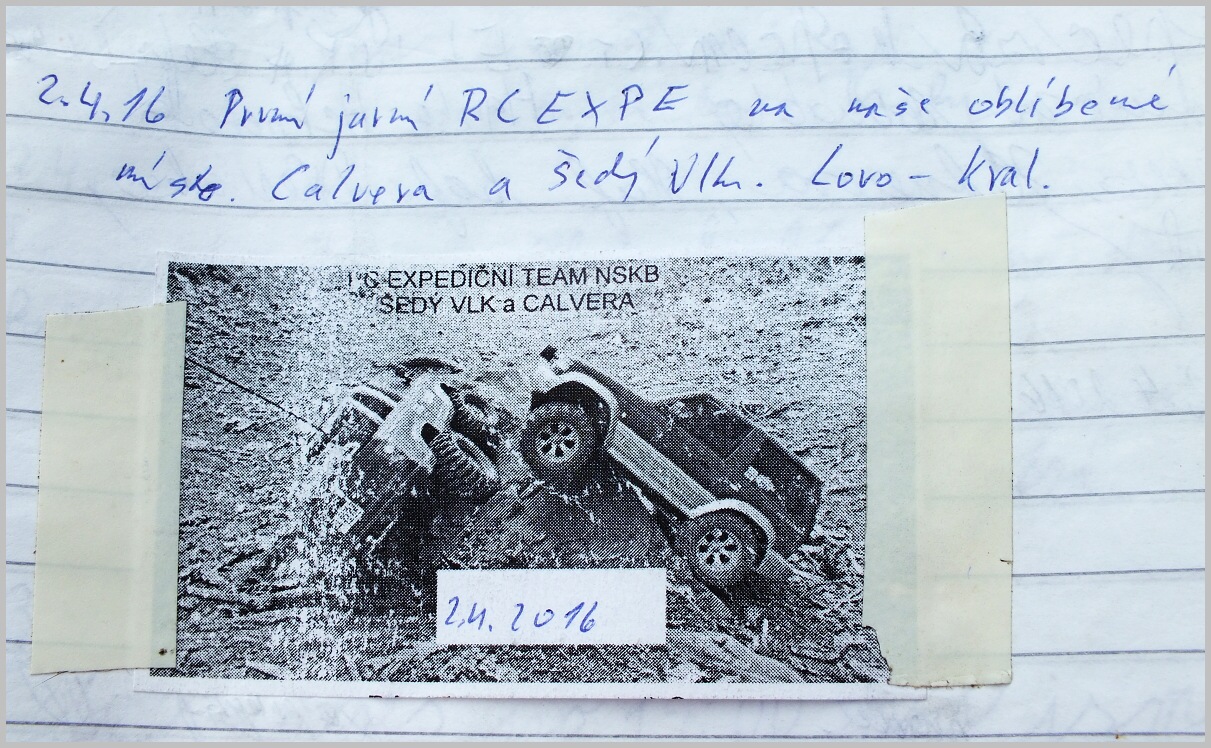 2.4.16 První jarní RCEXPE na naše oblíbené
místo. Calvera a Šedý Vlk. Lovo-Kral.
RC EXPEDIČNÍ TEAM NSKB
ŠEDÝ VLK a CALVERA
2.4.2016